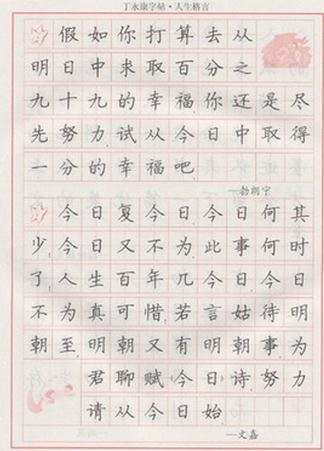 丁永康字帖·人生格言
假如你打算去从
明日中来取百分之
九十九的幸福你还是尽
先努力试从今日中取得
一分的幸福吧
今日复今日今日何其
少今日又不为此事何时
了人生百年几今日今日
不为真可惜若言姑待明
朝至明朝又有明朝事为
君聊赋今日诗努力
请从今日始
—文嘉